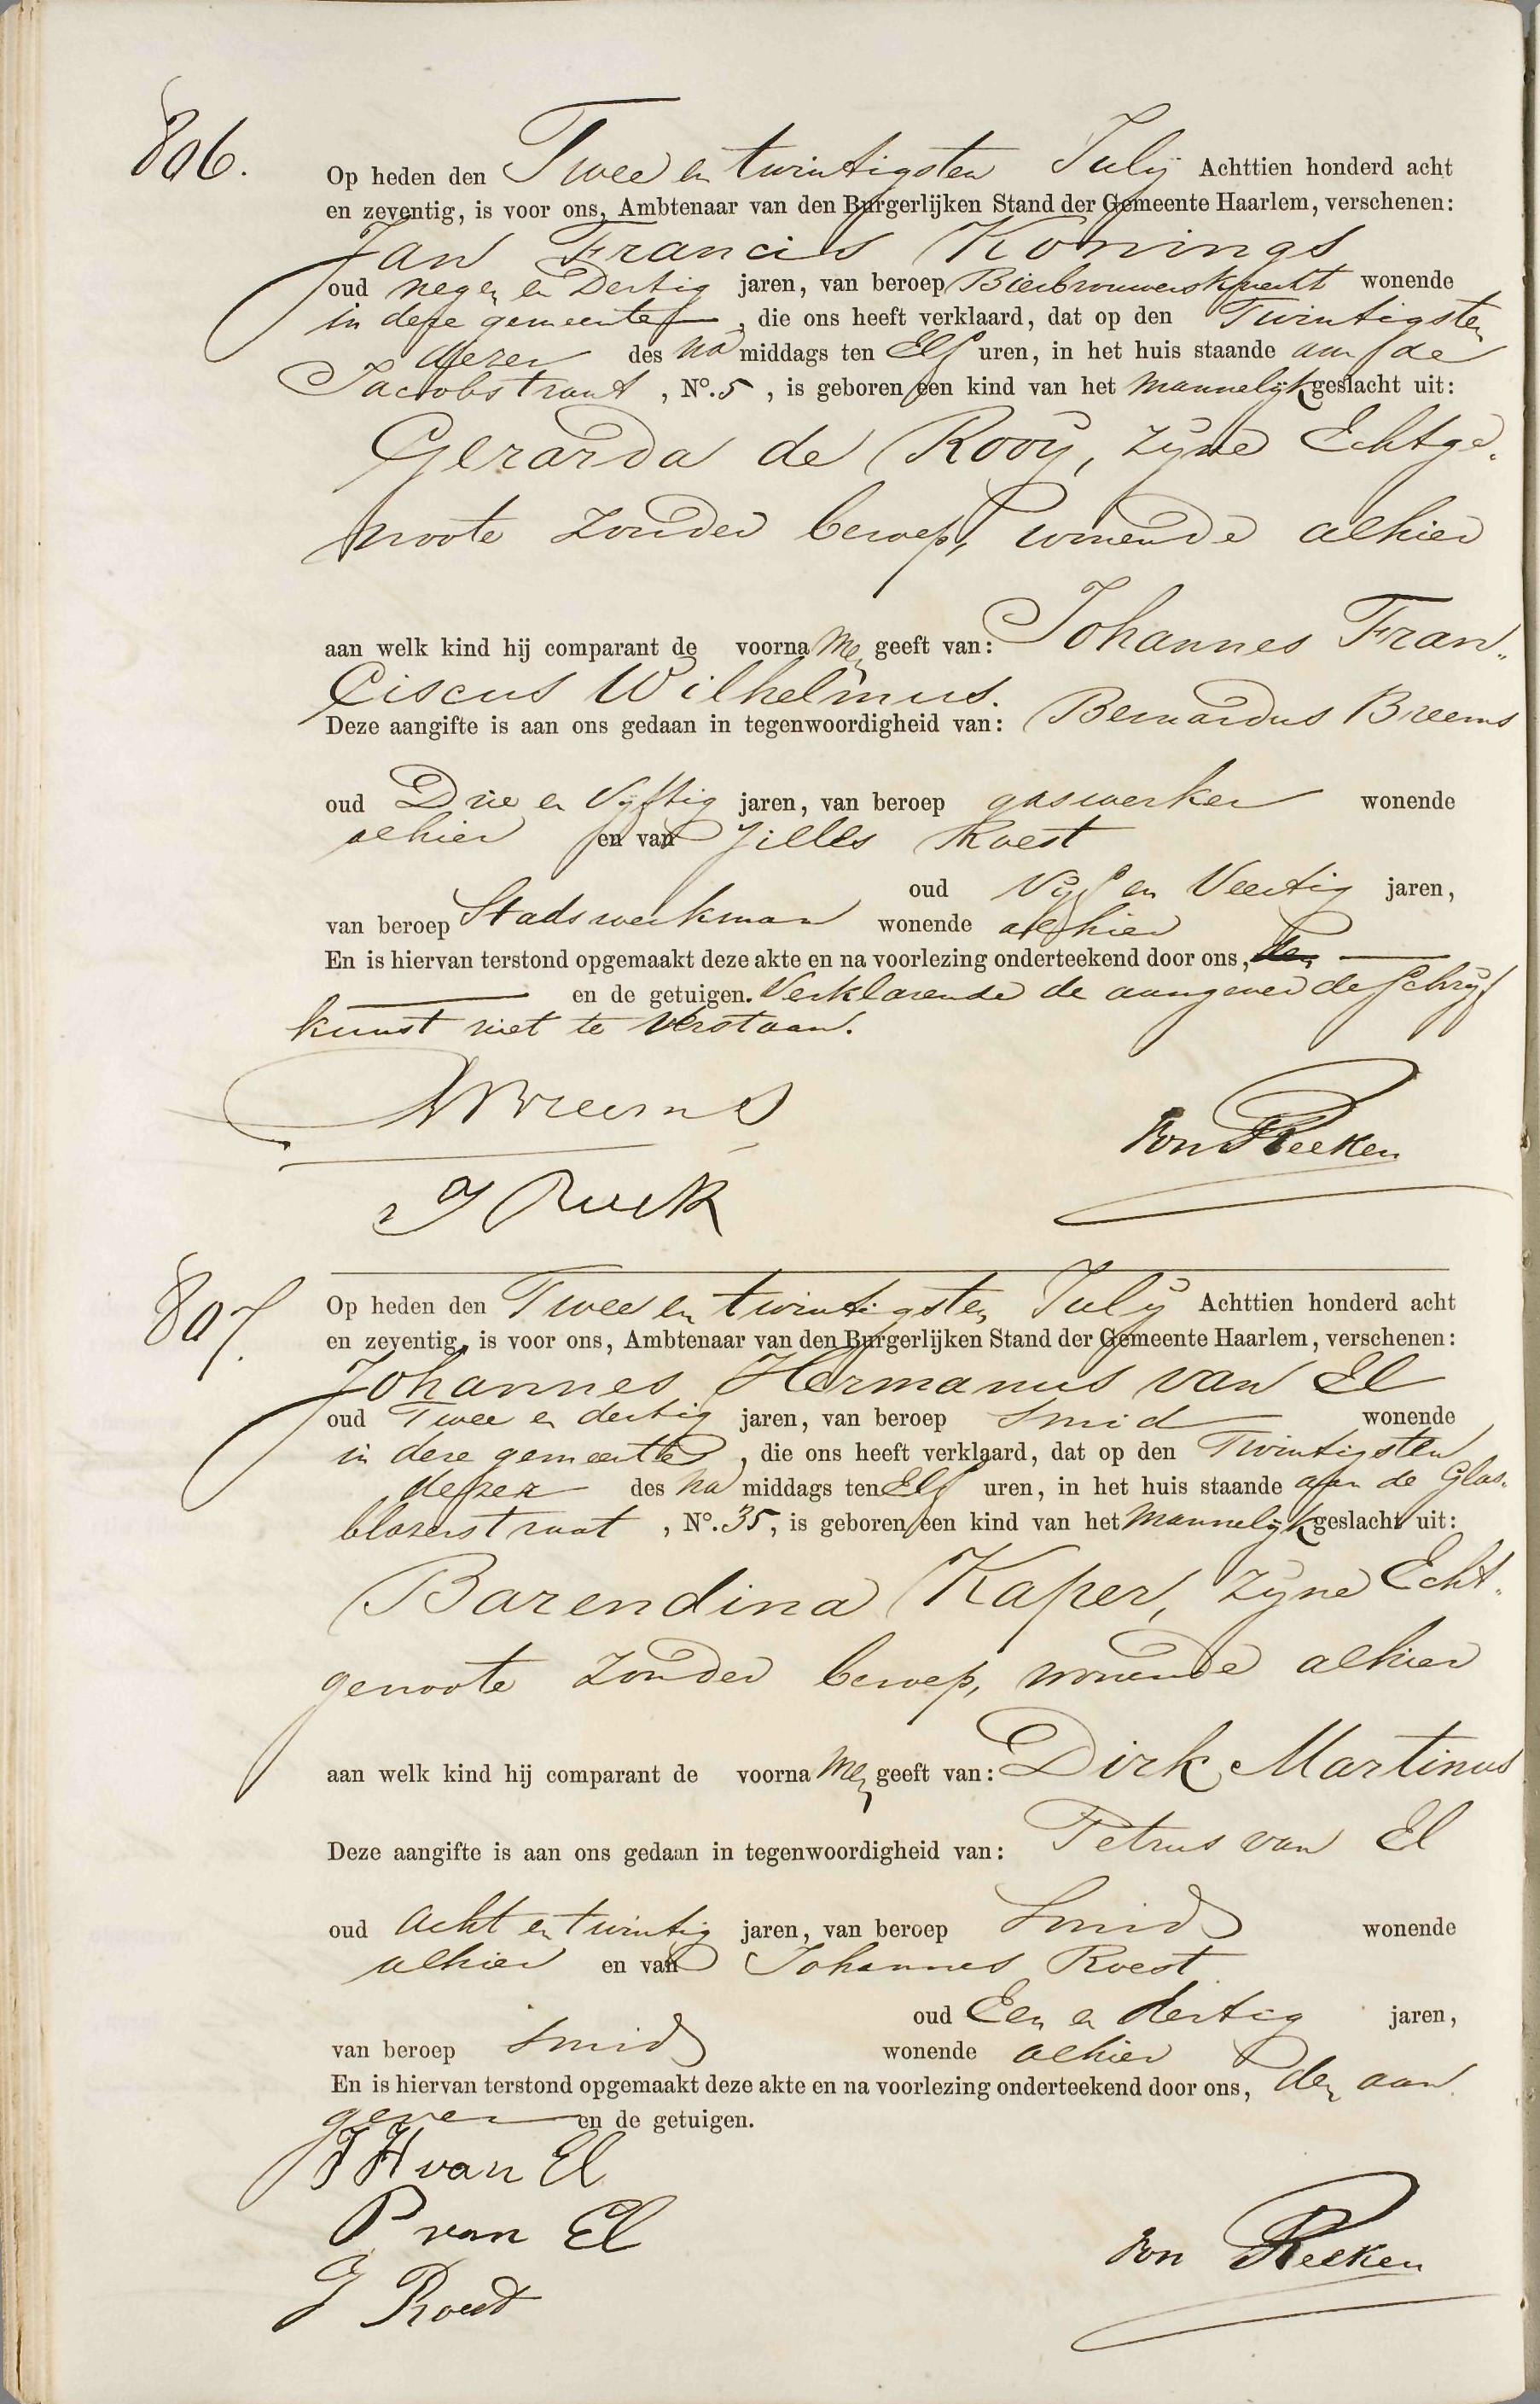 806.
Op heden den Twee en twintigsten July Achttien honderd acht
en zeventig, is voor ons, Ambtenaar van den Burgerlijken Stand der Gemeente Haarlem, verschenen:
Jan Francis Konings
oud negen en Dertig jaren, van beroep Bierbrouwersknecht wonende
in deze gemeente, die ons heeft verklaard, dat op den Twintigsten
dezer des na middags ten Elf uren, in het huis staande aan de
Jacobstraat, No. 5, is geboren een kind van het mannelijk geslacht uit:
Gerarda de Rooy, zyne Echtge-
noote zonder beroep, wonende alhier
aan welk kind hij comparant de voornamen geeft van: Johannes Fran-
ciscus Wilhelmus.
Deze aangifte is aan ons gedaan in tegenwoordigheid van: Bernardus Breems
oud Drie en Vyftig jaren, van beroep gaswerker wonende
alhier en van Jilles Roest
oud Vyf en Veertig jaren,
van beroep Stadswerkman wonende alhier
En is hiervan terstond opgemaakt deze akte en na voorlezing onderteekend door ons, den
en de getuigen. Verklarende de aangever de schryf
kunst niet te verstaan.
Breems
von Reeken
J
807.
Op heden den Twee en twintigsten July Achttien honderd acht
en zeventig, is voor ons, Ambtenaar van den Burgerlijken Stand der Gemeente Haarlem, verschenen:
Johannes Hermanus van El
oud Twee en dertig jaren, van beroep Smid wonende
in deze gemeente, die ons heeft verklaard, dat op den Twintigsten
dezer des na middags ten Elf uren, in het huis staande aan de Glas-
blazerstraat, No. 35, is geboren een kind van het mannelyk geslacht uit:
Barendina Kaper, zyne Echt-
genoote zonder beroep, wonende alhier
aan welk kind hij comparant de voornamen geeft van: Dirk Martinus
Deze aangifte is aan ons gedaan in tegenwoordigheid van: Petrus van El
oud Acht en twintig jaren, van beroep Smid wonende
alhier en van Johannes Roest
oud Een en dertig jaren,
van beroep Smid wonende alhier
En is hiervan terstond opgemaakt deze akte en na voorlezing onderteekend door ons, den aan
gever en de getuigen.
J H van El
P van El
von Reeken
J Roest